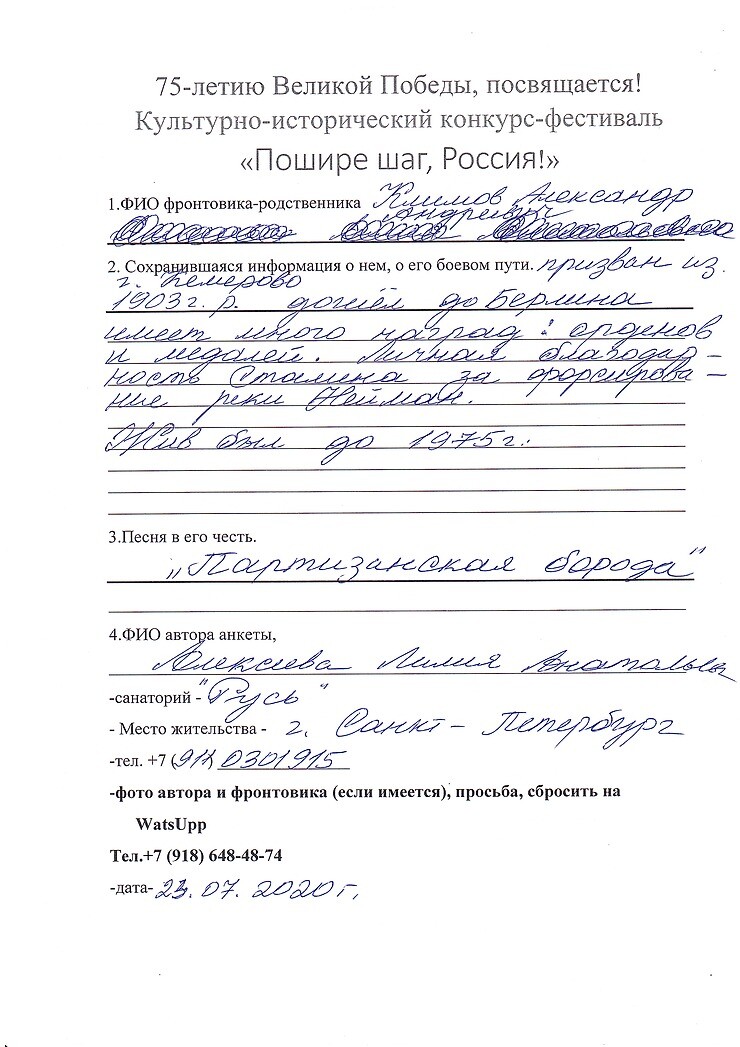 75-летию Великой Победы, посвящается!
Культурно-исторический конкурс-фестиваль
«Пошире шаг, Россия!»
1.ФИО фронтовика-родственника Климов Александр
Андреевич
2. Сохранившаяся информация о нем, о его боевом пути. призван из
г. Кемерово
1903 г. р. дошёл до Берлина
имеет много наград: орденов
и медалей. Личная благодар-
ность Сталина за форсирова-
ние реки Нейман.
Жив был до 1975 г.
3.Песня в его честь.
„Партизанская борода"
4.ФИО автора анкеты,
Алексеева Лилия Анатольевна
-санаторий - "Русь"
- Место жительства - г. Санкт-Петербург
-тел. +7 (911) 0301915
-фото автора и фронтовика (если имеется), просьба, сбросить на
WatsUpp
Тел.+7 (918) 648-48-74
-дата- 23.07.2020 г.